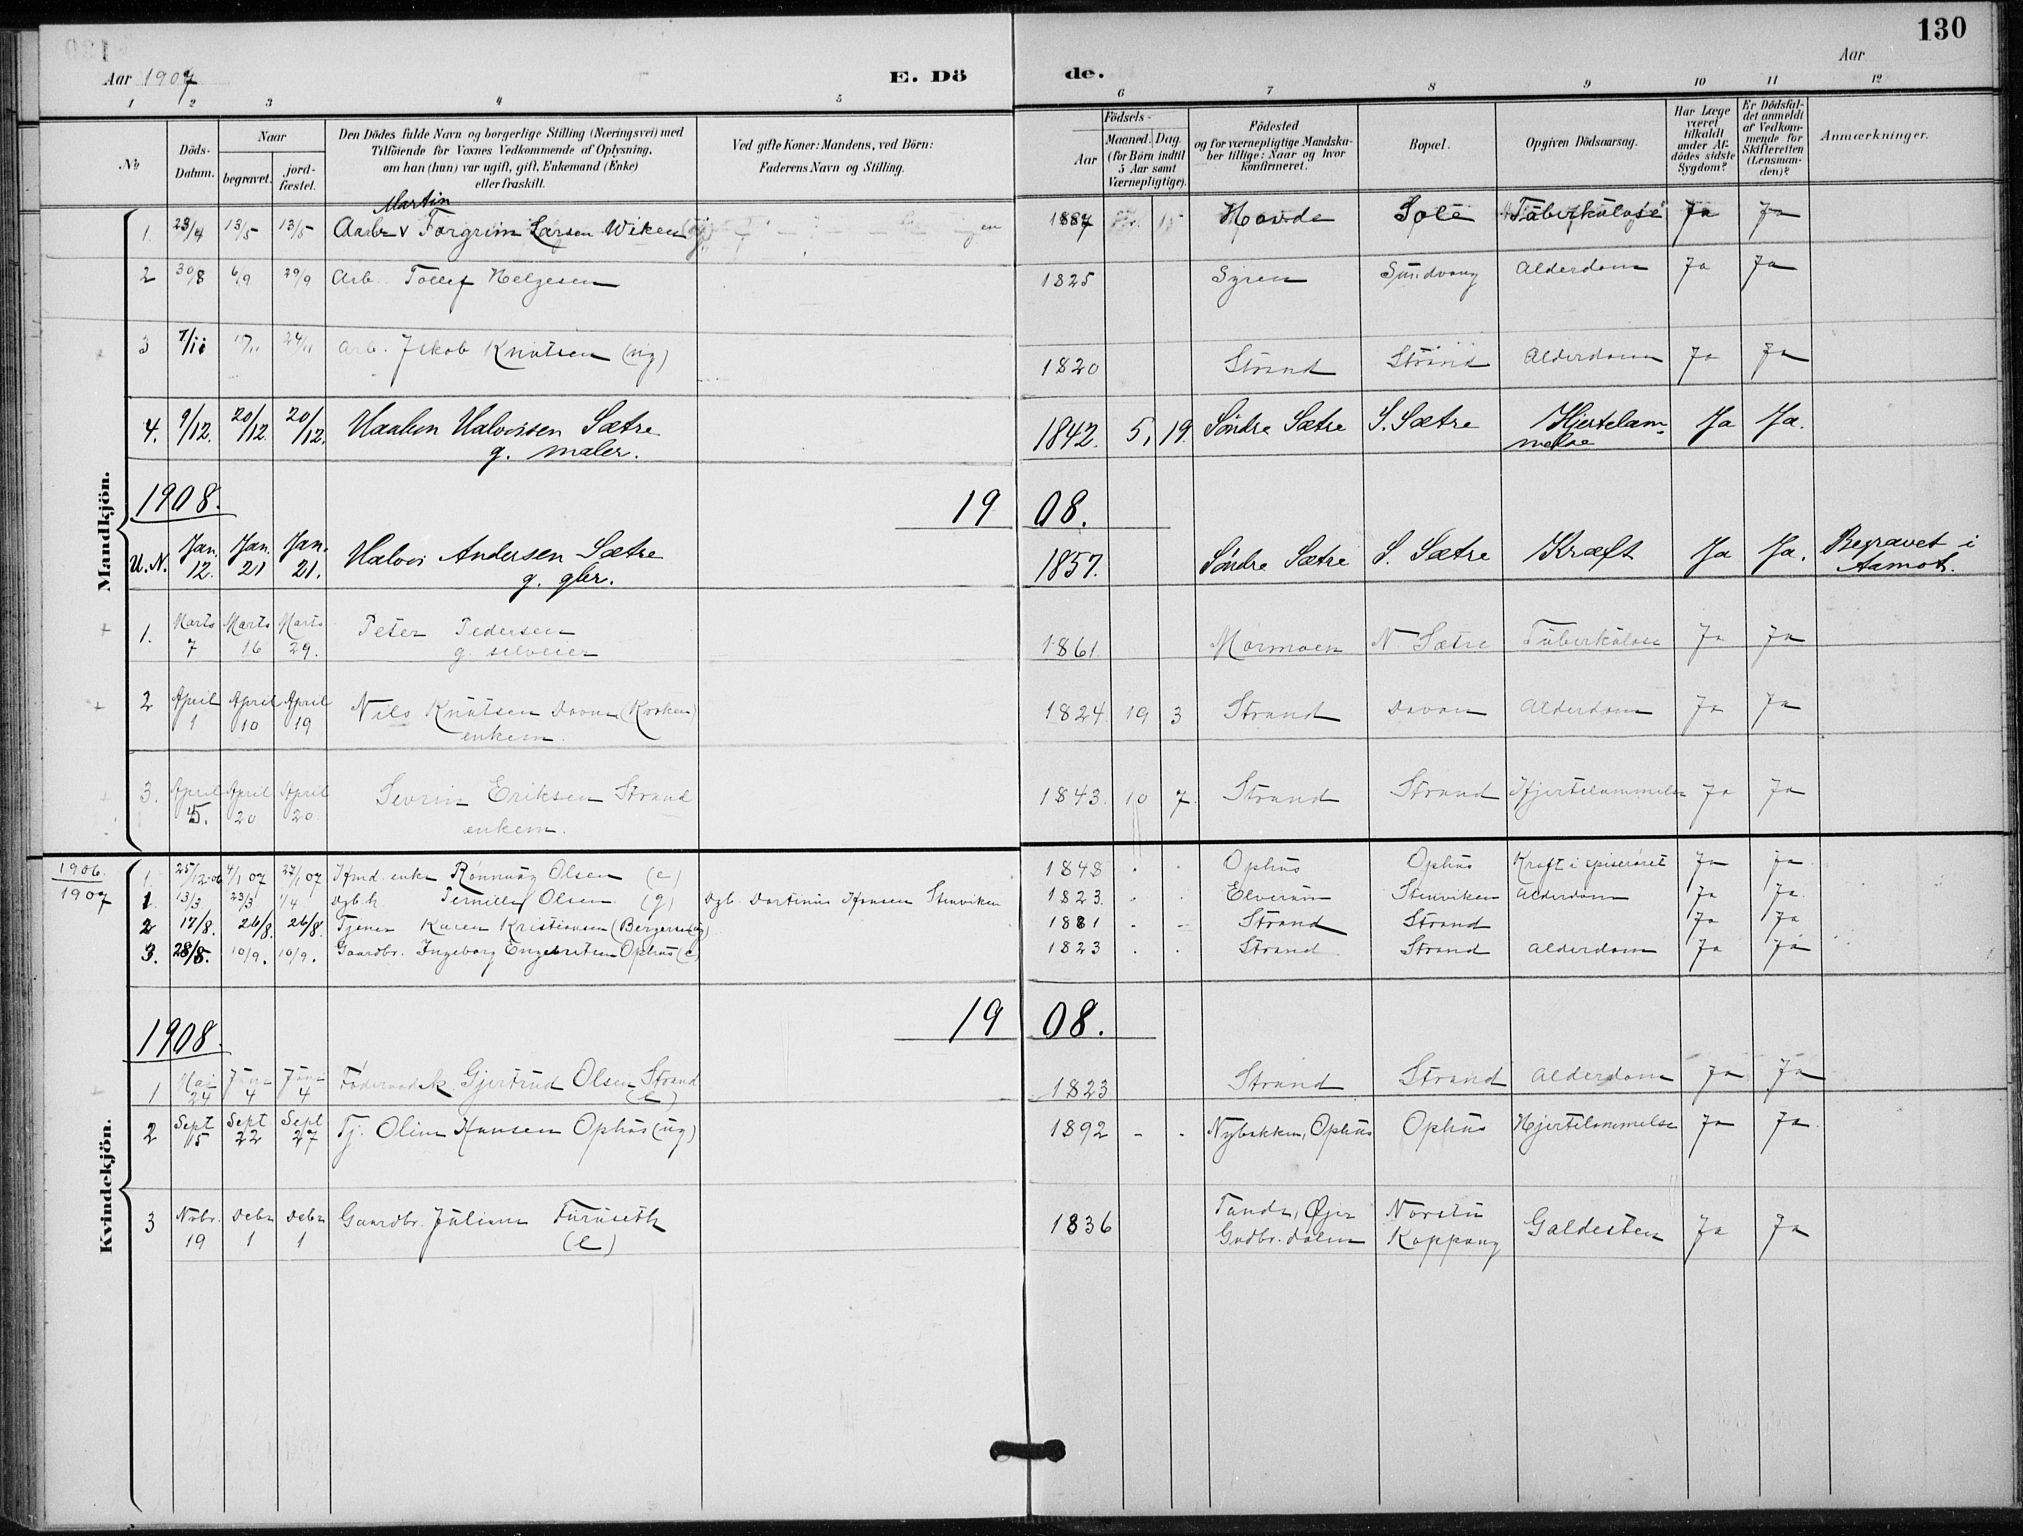 130
Aar 1907 E. Dö de. Aar
1 2 3 4 5 6 7 8 9 10 11 12
No
Döds-Datum.
Naar
begravet.
jord-fæstet.
Den Dödes fulde Navn og borgerlige Stilling (Næringsvei) med
Tilföiende for Voxnes Vedkommende af Oplysning,
om han (hun) var ugift, gift, Enkemand (Enke)
eller fraskilt.
Ved gifte Koner: Mandens, ved Börn:
Faderens Navn og Stilling.
Födsels-
Aar
Maaned. Dag.
(for Börn indtil
5 Aar samt
Værnepligtige).
Födested
og for værnepligtige Mandska-
ber tillige: Naar og hvor
konfirmeret.
Bopæl.
Opgiven Dödsaarsag.
Har Læge
været
tilkaldt
under Af-
dödes sidste
Sygdom?
Er Dödsfal-
det anmeldt
af Vedkom-
mende for
Skifteretten
(Lensman-
den)?
Anmærkninger.
Mandkjön.
Martin
1. 23/4 13/5 13/5 Torgrim Larsen Wiken 1887 Hovde Sole Tüberkülose Ja Ja
2 30/8 6/9 29/9 Arb. Tollef Helgesen 1825 Syren Sündvang Alderdom Ja Ja
3 7/11 17/11 24/11 Arb. Jakob Knütsen (ug) 1820 Strand Strand Alderdom Ja Ja
4. 9/12. 20/12. 20/12. Haaken Halvorsen Sætre 1842. 5. 19. Söndre Sætre S. Sætre Hjertelam- Ja Ja.
g. maler. melse
1908. 19 08.
U.N. Jan. 12. Jan. 21 Jan. 21. Halvor Andersen Sætre 1857. Söndre Sætre S. Sætre Kræft Ja Ja. Begravet i
g. gbr. Aamot.
1. Marts 7 Marts 16 Marts 29. Peter Pedersen 1861. Mørmoen N. Sætre Tüberkülose Ja Ja
g. selveier
2 April 1 April 10 April 19 Nils Knütsen Dovan (Kroken) 1824. 19 3 Strand Dovan Alderdom Ja Ja
enkem.
3. April 5. April 20 April 20 Sevrin Eriksen Strand 1843. 10 7. Strand Strand Hjertelammelse Ja Ja
enkem.
Kvindekjön.
1906. 1. 25/12-06 4/1 07 27/1 07 Hmd. enke Rønnaug Olsen (e) 1848 Ophüs Ophüs Kræft i spiserøret Ja Ja
1907 1. 13/3 23/3 1/4 Dgbk. Pernille Olsen (g) Dgb. Dortinus Hansen Stenviken 1823. Elverüm Stenviken Alderdom Ja Ja
2 17/8. 26/8. 26/8. Tjener Karen Kristiansen (Bergersen) 1881 Strand Strand Ja Ja
3. 28/8. 10/9. 10/9. Gaardbr. Ingeborg Engebretsen Ophüs (e) 1823 Strand Strand Alderdom Ja Ja
1908. 19 08.
1 Mai 24 Jüni 4 Jüni 4 Føderaadsk. Gjertrüd Olsen Strand 1823 Strand Strand Alderdom Ja Ja
(e)
2 Sept 15 Sept 22 Sept 27 Tj. Oline Hansen Ophüs (üg) 1892 - - Nybakken, Ophüs Ophüs Hjertelammelse Ja Ja
3 Nvbr. 19 Debr 1 Debr 1 Gaardbr. Juliane Fürüseth 1836 Tande, Øjer Norstü Galdesten Ja Ja
(e) Gudbr.dalen Koppang